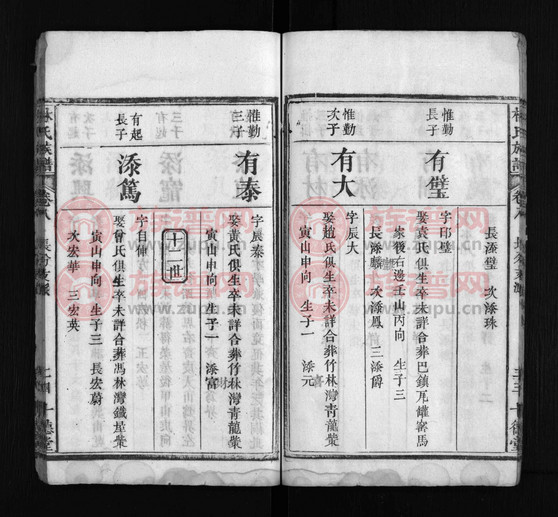 林氏族譜
卷八
長添璧 次添珠
惟勤
長子
有璧
字印璧
娶袁氏俱生卒未詳合葬巴鎮瓦鑵窰馬
家後右邊壬山丙向 生子三
長添麟 次添鳳 三添爵
惟勤
次子
有大
字辰大
娶趙氏俱生卒未詳合葬竹林灣青龍嘴
寅山申向 生子一 添元
惟勤
三子
有泰
字辰泰
娶黃氏俱生卒未詳合葬竹林灣青龍嘴
寅山申向 生子一 添富
十二世
有起
長子
添篤
字自伸
娶曾氏俱生卒未詳合葬馬林灣鐵星嘴
寅山申向 生子三 長宏蔚
次宏華 三宏英
林氏族譜
卷八
德堂
族譜网
www.zupu.com